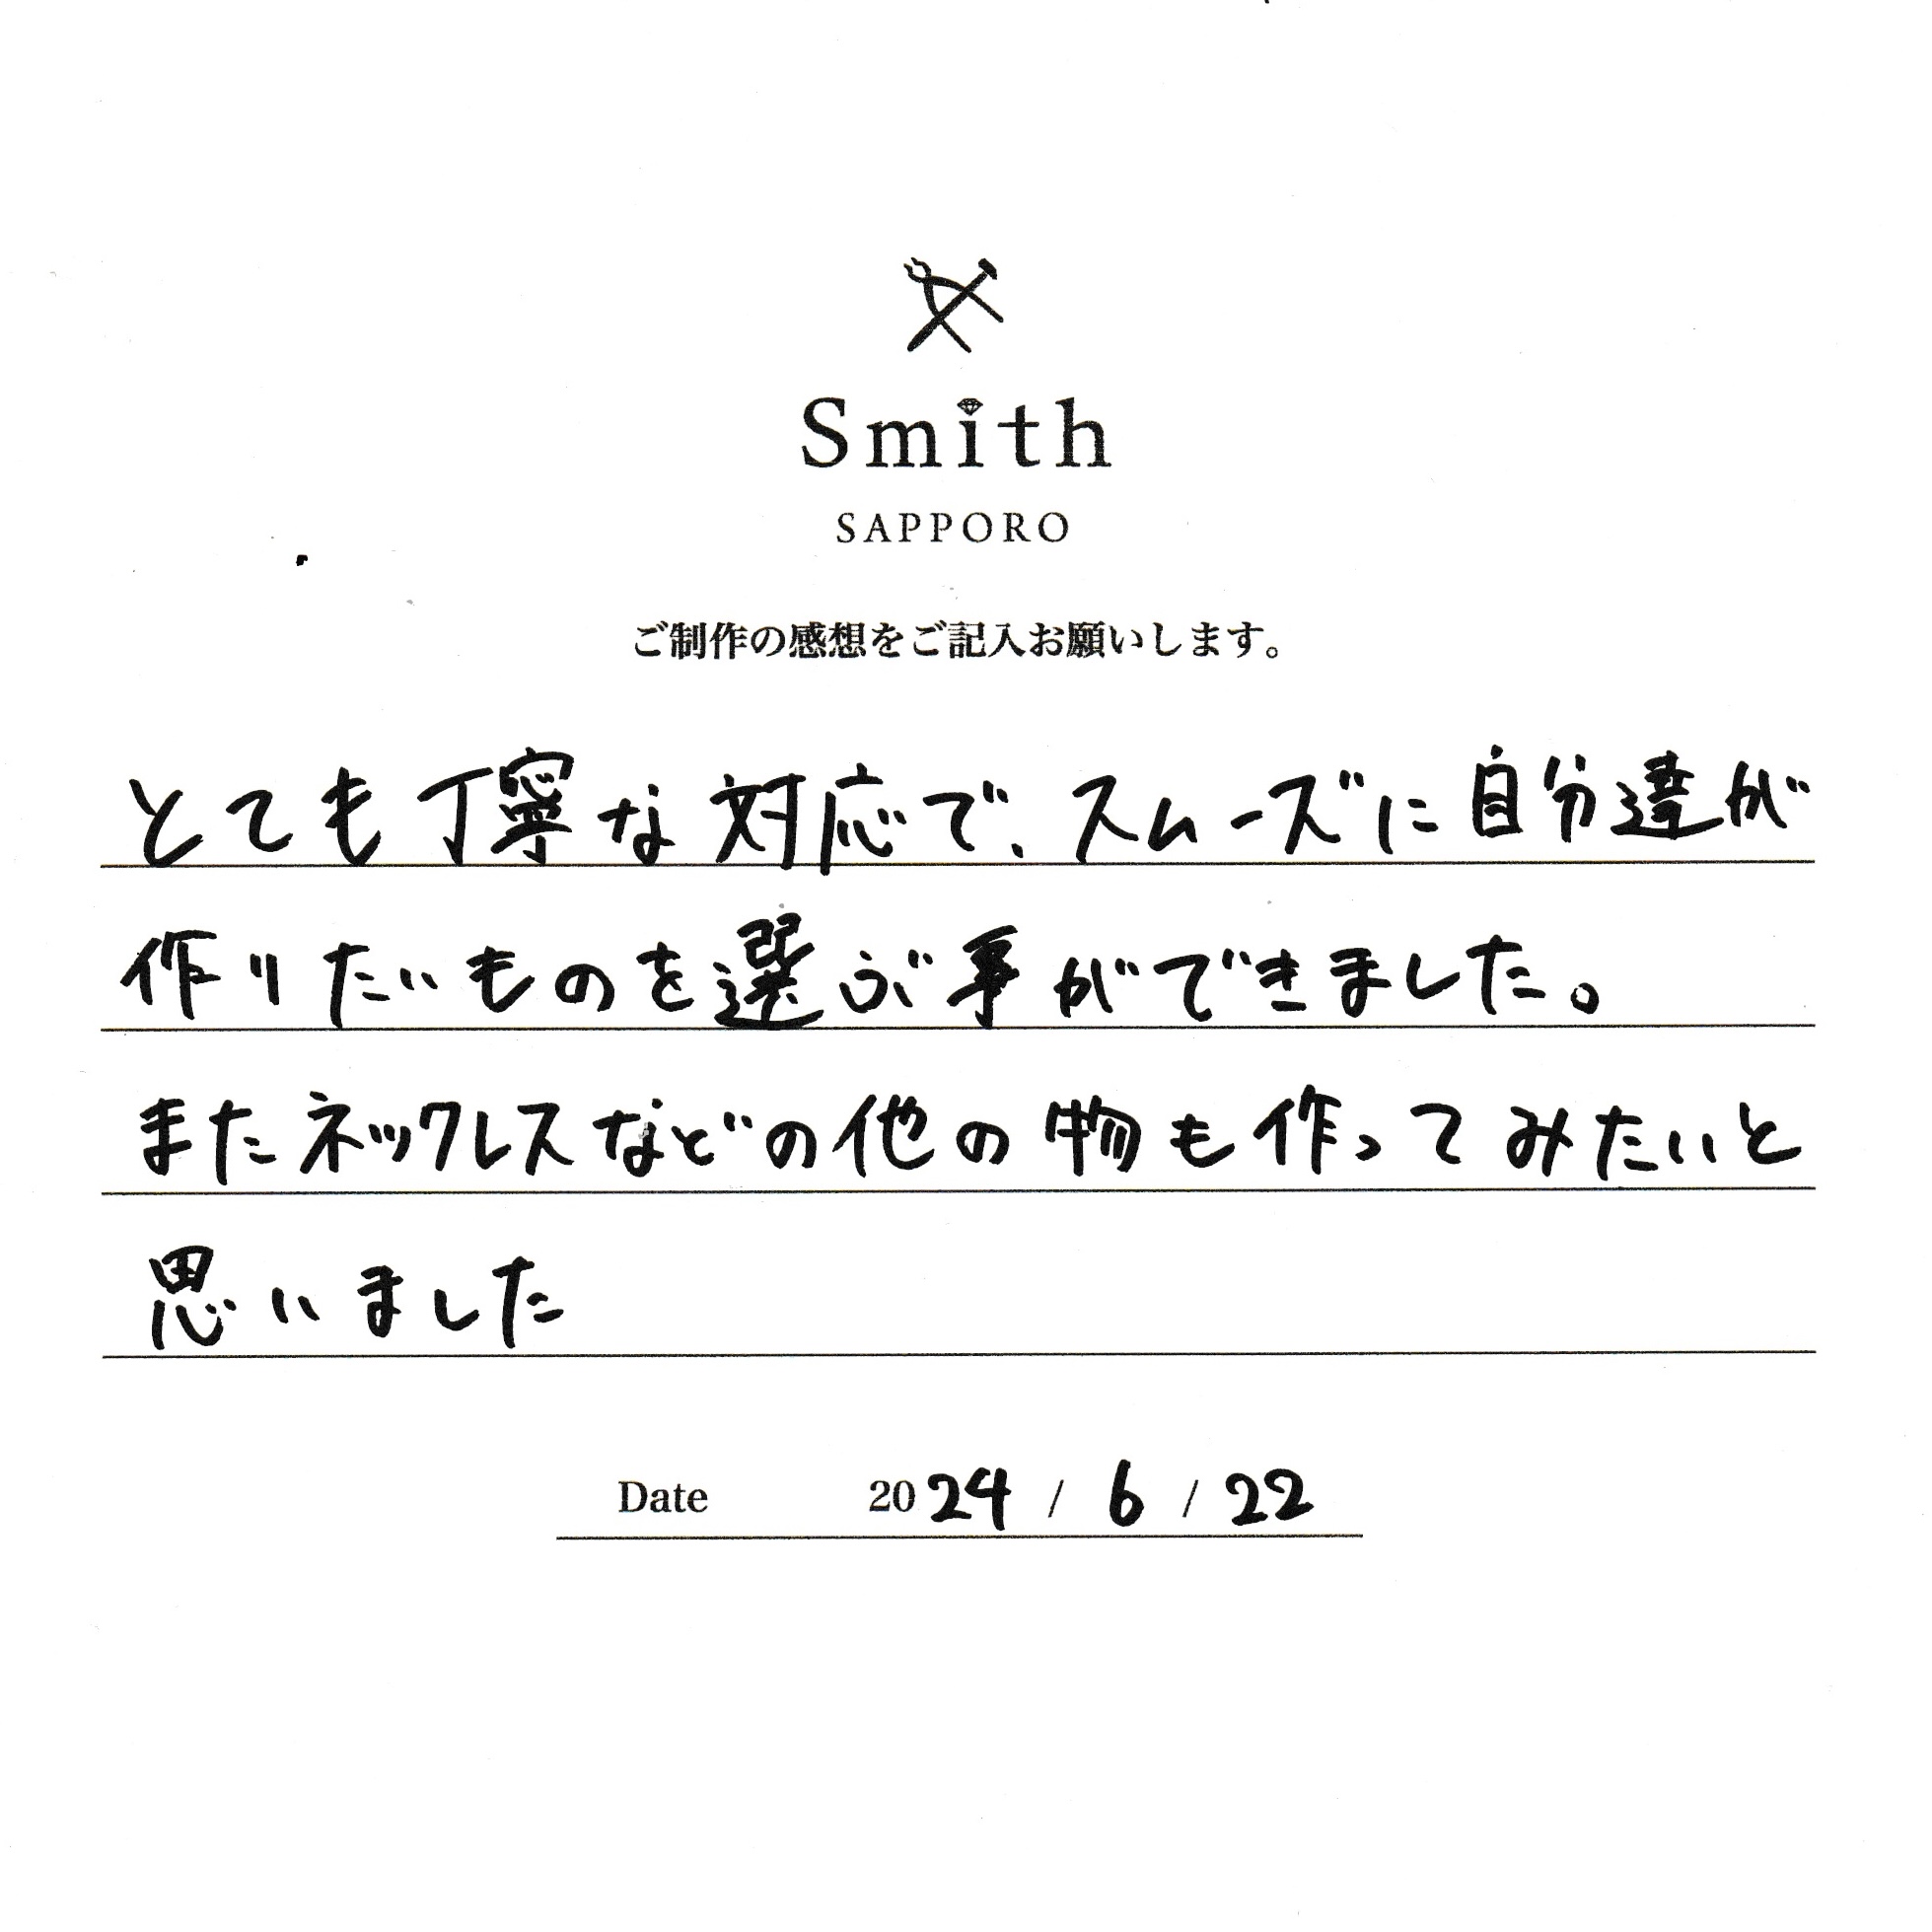 Smith
SAPPORO
ご制作の感想をご記入お願いします。
とても丁寧な対応で、スムーズに自分達が
作りたいものを選ぶ事ができました。
またネックレスなどの他の物も作ってみたいと
思いました
Date 2024 / 6 / 22